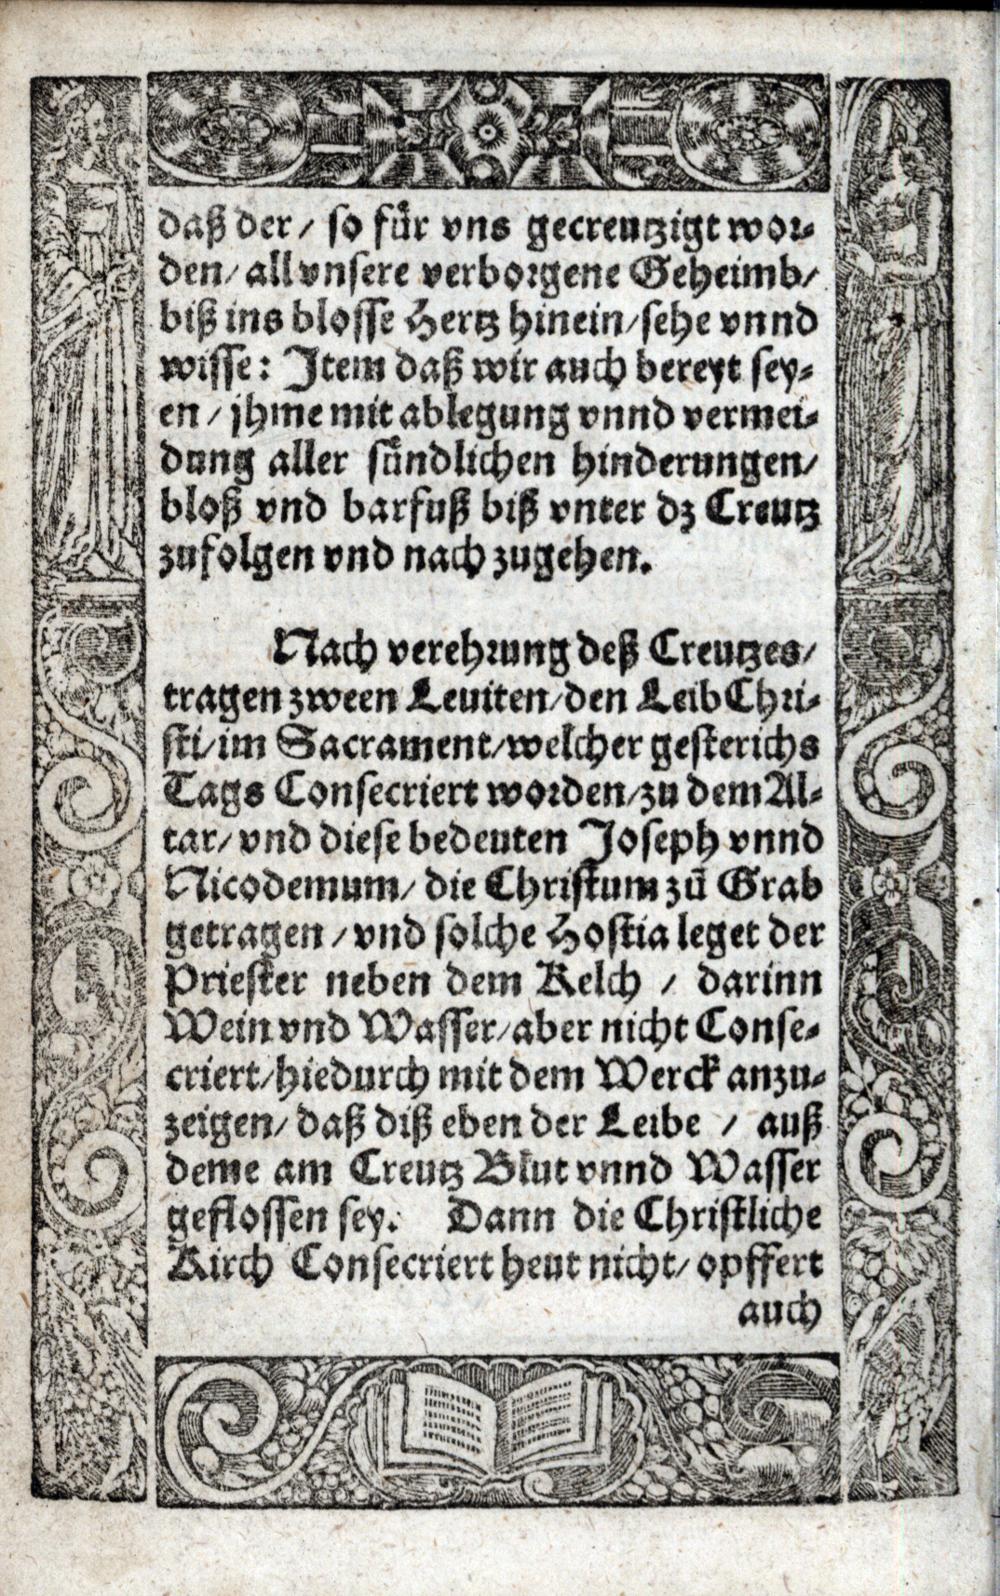 daß der/ so für vns gecreutzigt wor-
den/ all vnsere verborgene Geheimb/
biß ins blosse Hertz hinein/sehe vnnd
wisse: Item daß wir auch bereyt sey-
en/ jhme mit ablegung vnnd vermei-
dung aller sündlichen hinderungen/
bloß vnd barfuß biß vnter dz Creutz
zufolgen vnd nach zugehen.
Nach verehrung deß Creutzes/
tragen zween Leuiten/den Leib Chri-
sti/im Sacrament/welcher gesterichs
Tags Consecriert worden/zu dem Al-
tar/ vnd diese bedeuten Joseph vnnd
Nicodemum/ die Christum zů Grab
getragen/vnd solche Hostia leget der
Priester neben dem Kelch / darinn
Wein vnd Wasser/aber nicht Conse-
criert/hiedurch mit dem Werck anzu-
zeigen/ daß diß eben der Leibe / auß
deme am Creutz Blut vnnd Wasser
geflossen sey. Dann die Christliche
Kirch Consecriert heut nicht/ opffert
auch